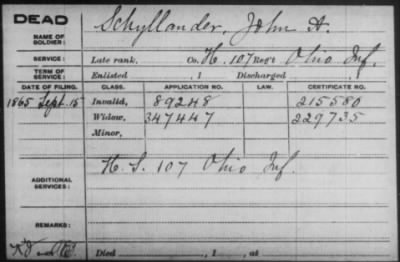 DEAD
NAME OF SOLDIER: Schyllander, John A.
SERVICE: Late rank, Co. H. 107 Reg't Ohio Inf.
TERM OF SERVICE: Enlisted , 1 Discharged , 1
DATE OF FILING. CLASS. APPLICATION NO. LAW. CERTIFICATE NO.
1865 Sept. 15 Invalid, 89248 215580
Widow, 347447 229735
Minor,
ADDITIONAL SERVICES: K. S. 107 Ohio Inf.
REMARKS:
Died , 1 , at